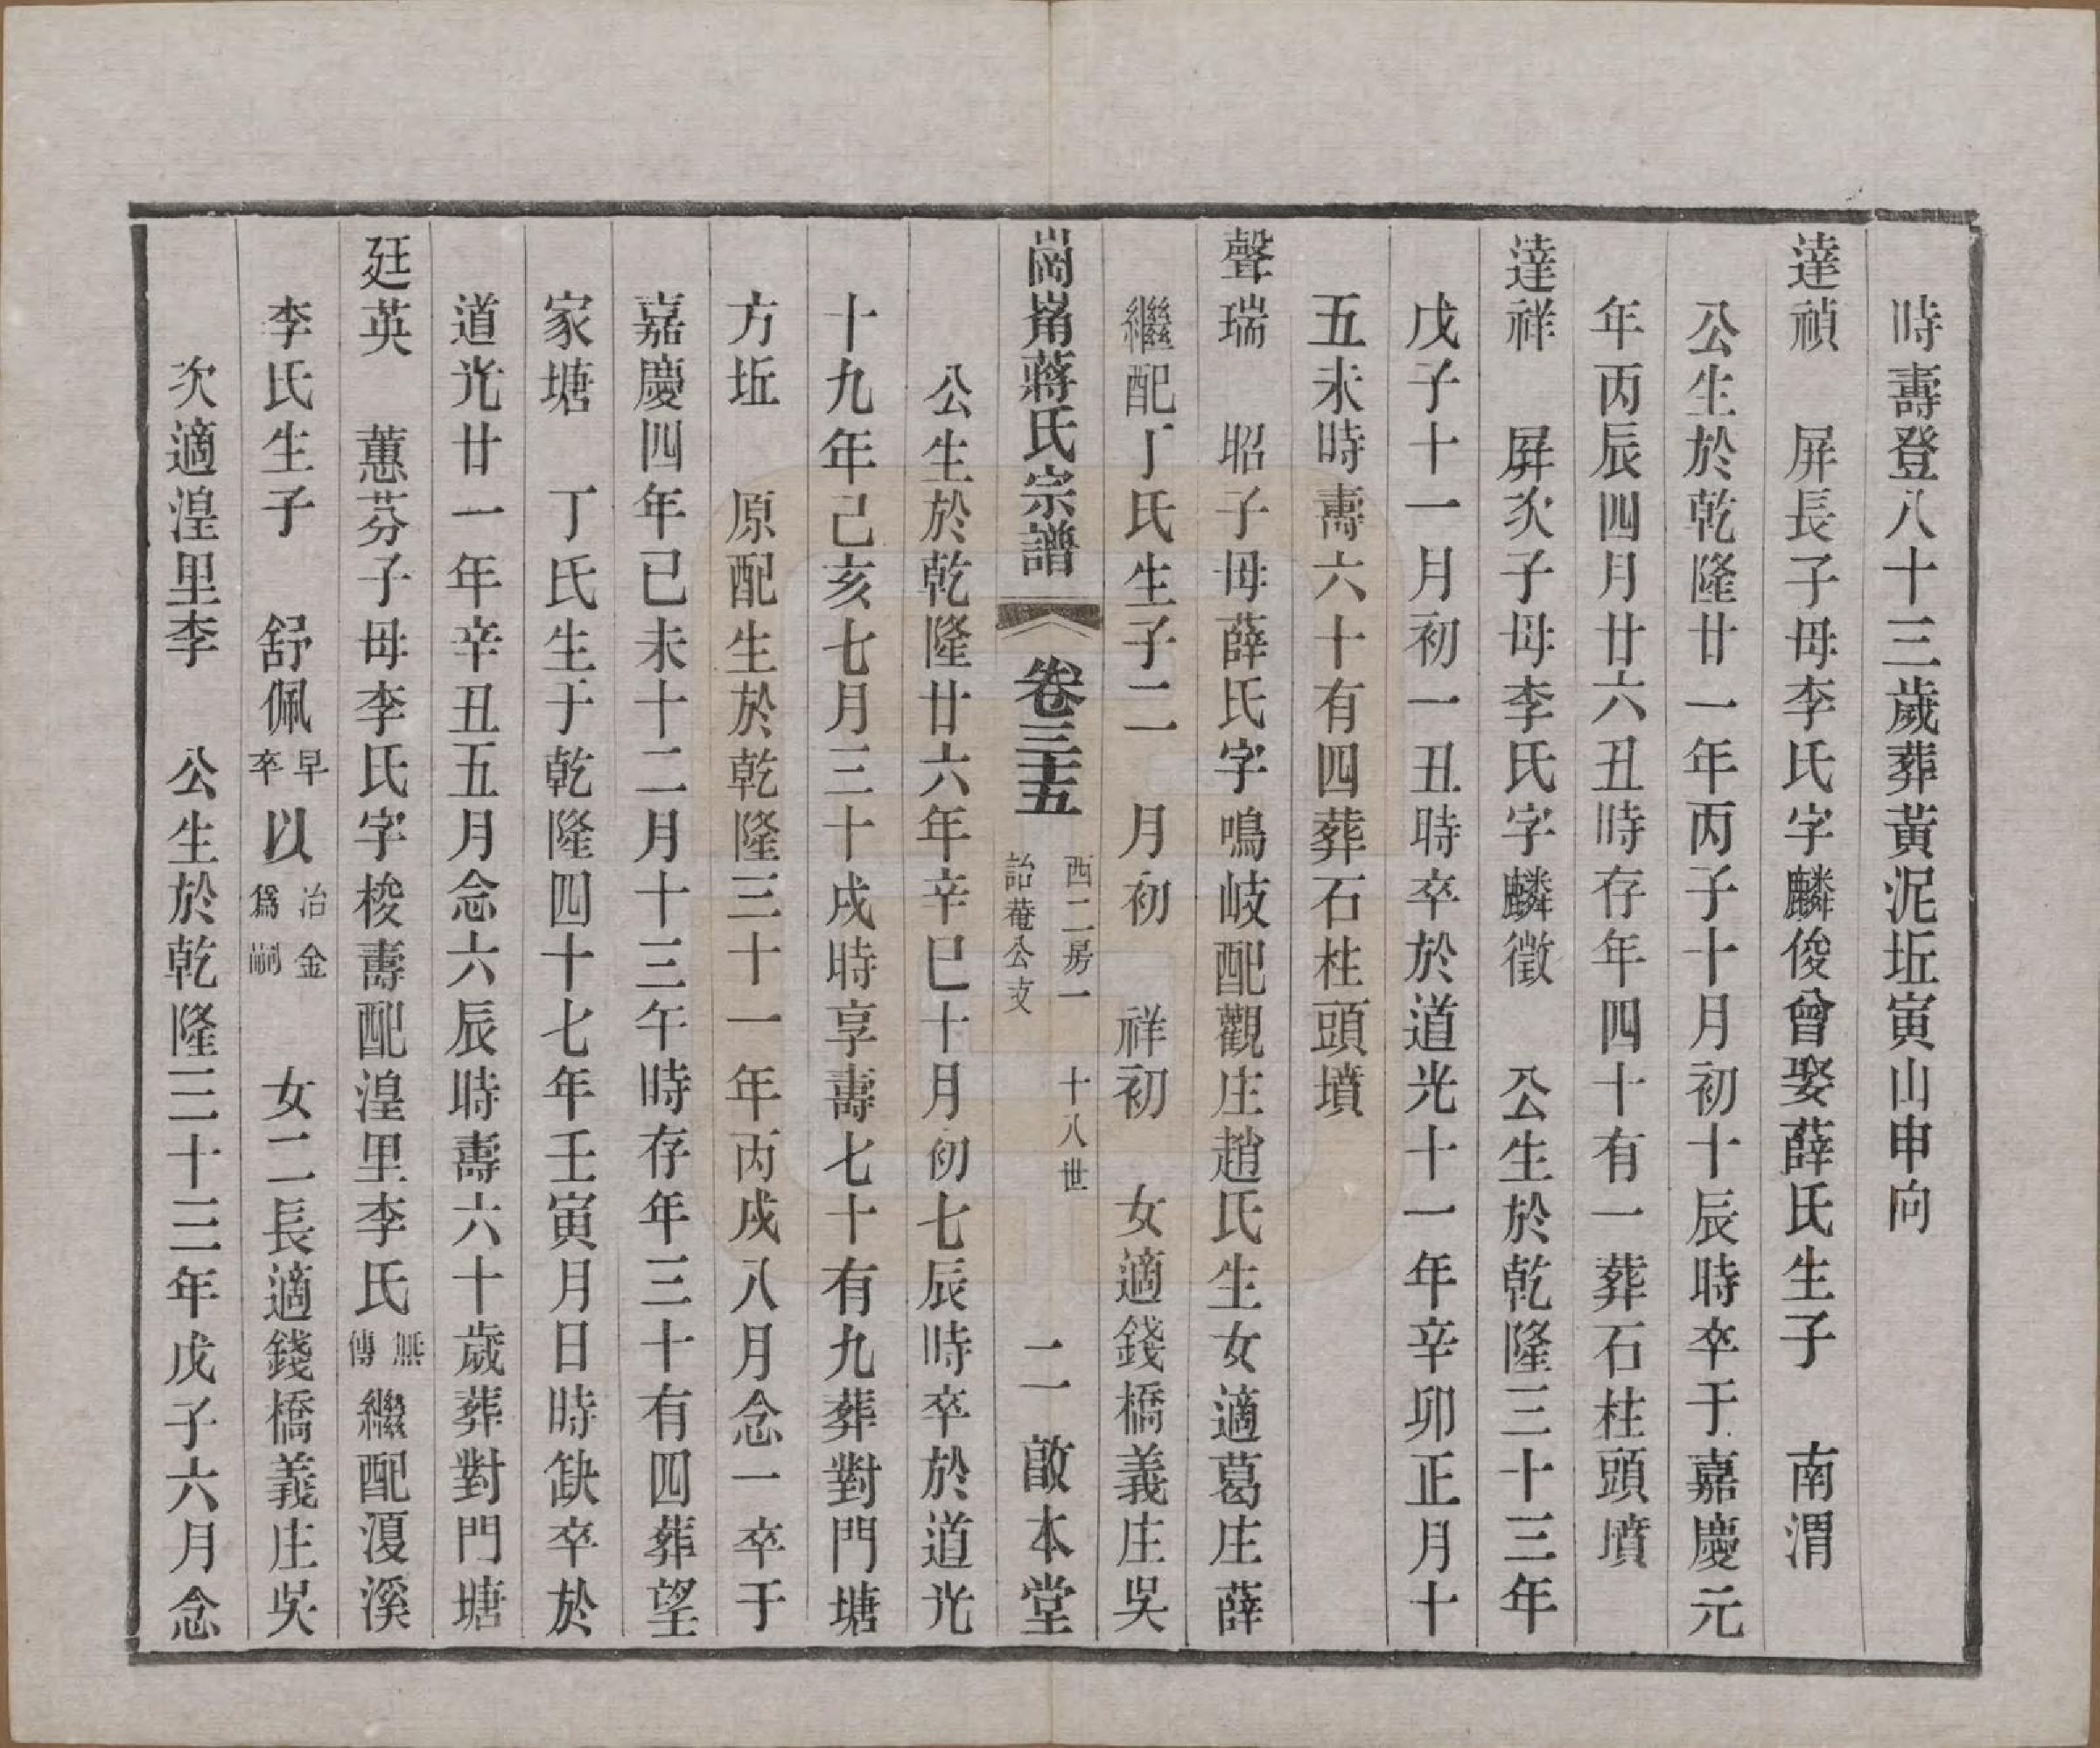 時壽登八十三歲葬黃泥坵寅山申向
達禎　屏長子母李氏字麟俊曾娶薛氏生子　南渭
公生於乾隆廿一年丙子十月初十辰時卒于嘉慶元
年丙辰四月廿六丑時存年四十有一葬石柱頭墳
達祥　屛次子母李氏字麟徵　公生於乾隆三十三年
戊子十一月初一丑時卒於道光十一年辛卯正月十
五未時壽六十有四葬石柱頭墳
聲瑞　昭子母薛氏字鳴岐配觀庄趙氏生女適葛庄薛
繼配丁氏生子二　月初　祥初　女適錢橋義庄吳
崗崗蔣氏宗譜　卷三十五　西二房一詒菴公支　十八世　二　啟本堂
公生於乾隆廿六年辛巳十月初七辰時卒於道光
十九年己亥七月三十戌時享壽七十有九葬對門塘
方坵　原配生於乾隆三十一年丙戌八月念一卒于
嘉慶四年已未十二月十三午時存年三十有四葬望
家塘　丁氏生于乾隆四十七年壬寅月日時缺卒於
道光廿一年辛丑五月念六辰時壽六十歲葬對門塘
廷英　蕙芬子母李氏字梭壽配湟里李氏無傳繼配溭溪
李氏生子　舒佩早卒以冶金爲嗣　女二長適錢橋義庄吳
次適湟里李　公生於乾隆三十三年戊子六月念